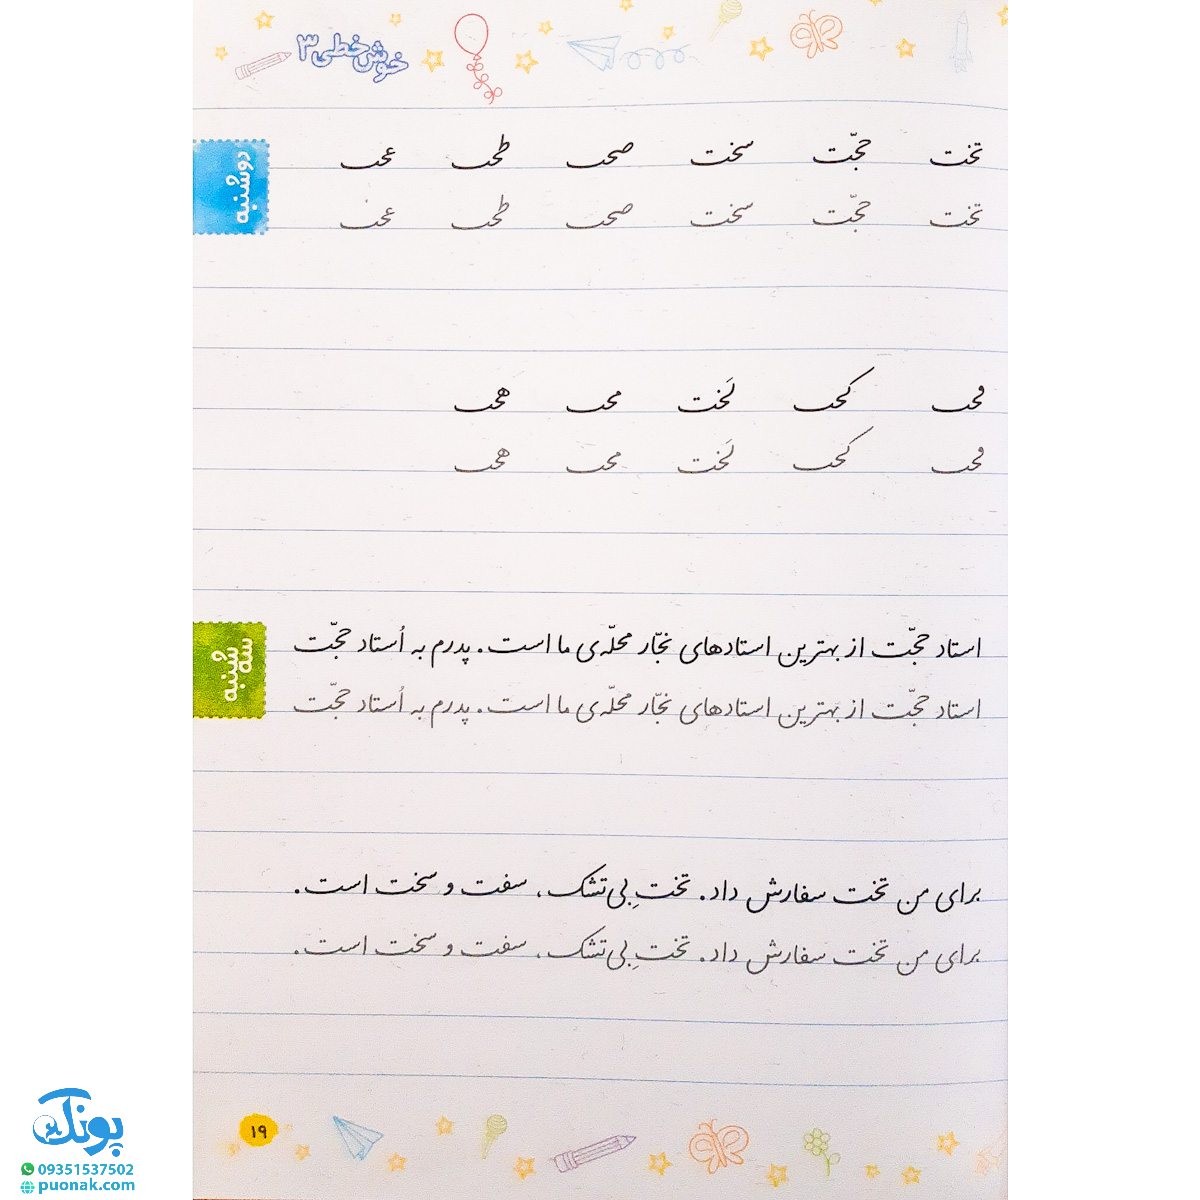 خوش‌خطی ۳
دوشنبه
تخت حجّت سخت صحب طحب عحب
تخت حجّت سخت صحب طحب عحب
فحب کحب لَخت محب هحب
فحب کحب لَخت محب هحب
سه‌شنبه
استاد حجّت از بهترین استادهای نجّار محلّه‌ی ما است. پدرم به اُستاد حجّت
استاد حجّت از بهترین استادهای نجّار محلّه‌ی ما است. پدرم به اُستاد حجّت
برای من تخت سفارش داد. تختِ بی‌تشک، سفت و سخت است.
برای من تخت سفارش داد. تختِ بی‌تشک، سفت و سخت است.
۱۹
پونک
09351537502
puonak.com